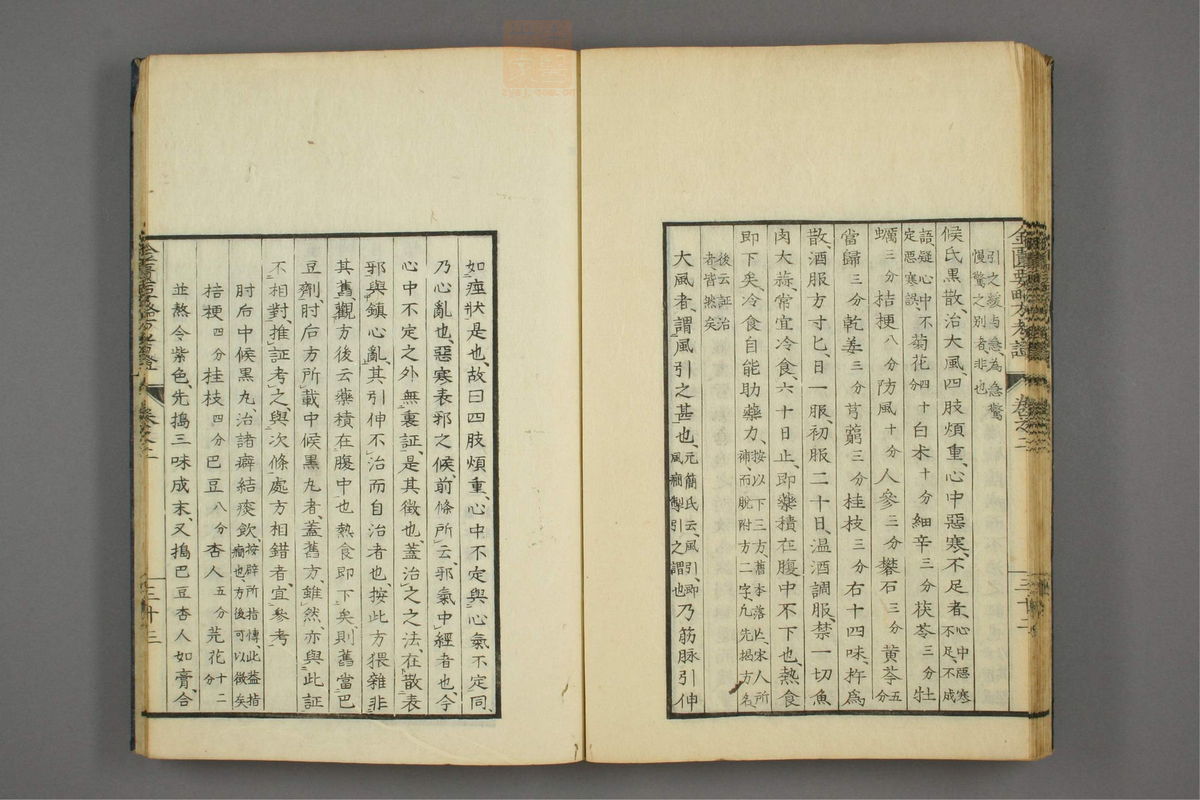 引之緩与急為急驚
慢驚之別者非也
候氏黒散治大風四肢煩重心中惡寒不足者心中惡寒不足不成
語疑心中不定惡寒誤菊花四十分白朮十分細辛三分茯苓三分牡
蠣三分桔梗八分防風十分人參三分礬石三分黄芩五分
當歸三分乾姜三分芎藭三分桂枝三分右十四味杵為
散酒服方寸匕日一服初服二十日温酒調服禁一切魚
肉大蒜常宜冷食六十日止即藥積在腹中不下也熱食
即下矣冷食自能助藥力按以下三方舊本落丛宋人所補而脫附方二字凡先揭方名
後云証治者皆然矣
大風者謂風引之甚也元蕳氏云風引即風癇掣引之謂也乃筋脉引伸
如痙狀是也故曰四肢煩重心中不定與心氣不定同
乃心亂也惡寒表邪之候前條所云邪氣中經者也今
心中不定之外無裏証是其徴也蓋治之之法在散表
邪與鎮心亂其引伸不治而自治者也按此方猥雜非
其舊觀方後云藥積在腹中也熱食即下矣則舊當巴
豆劑肘后方所載中候黒丸者蓋舊方雖然亦與此証
不相對推証考之與次條處方相錯者宜參考
肘后中候黒丸治諸癖結痰飲按辟所指慱此益指癇也方後可以徴矣
桔梗四分桂枝四分巴豆八分杏人五分芫花十二分
並熬令紫色先搗三味成末又搗巴豆杏人如膏合
金匱要略方考證
卷之二
三十二
金匱要略方考證
卷之二
三十三